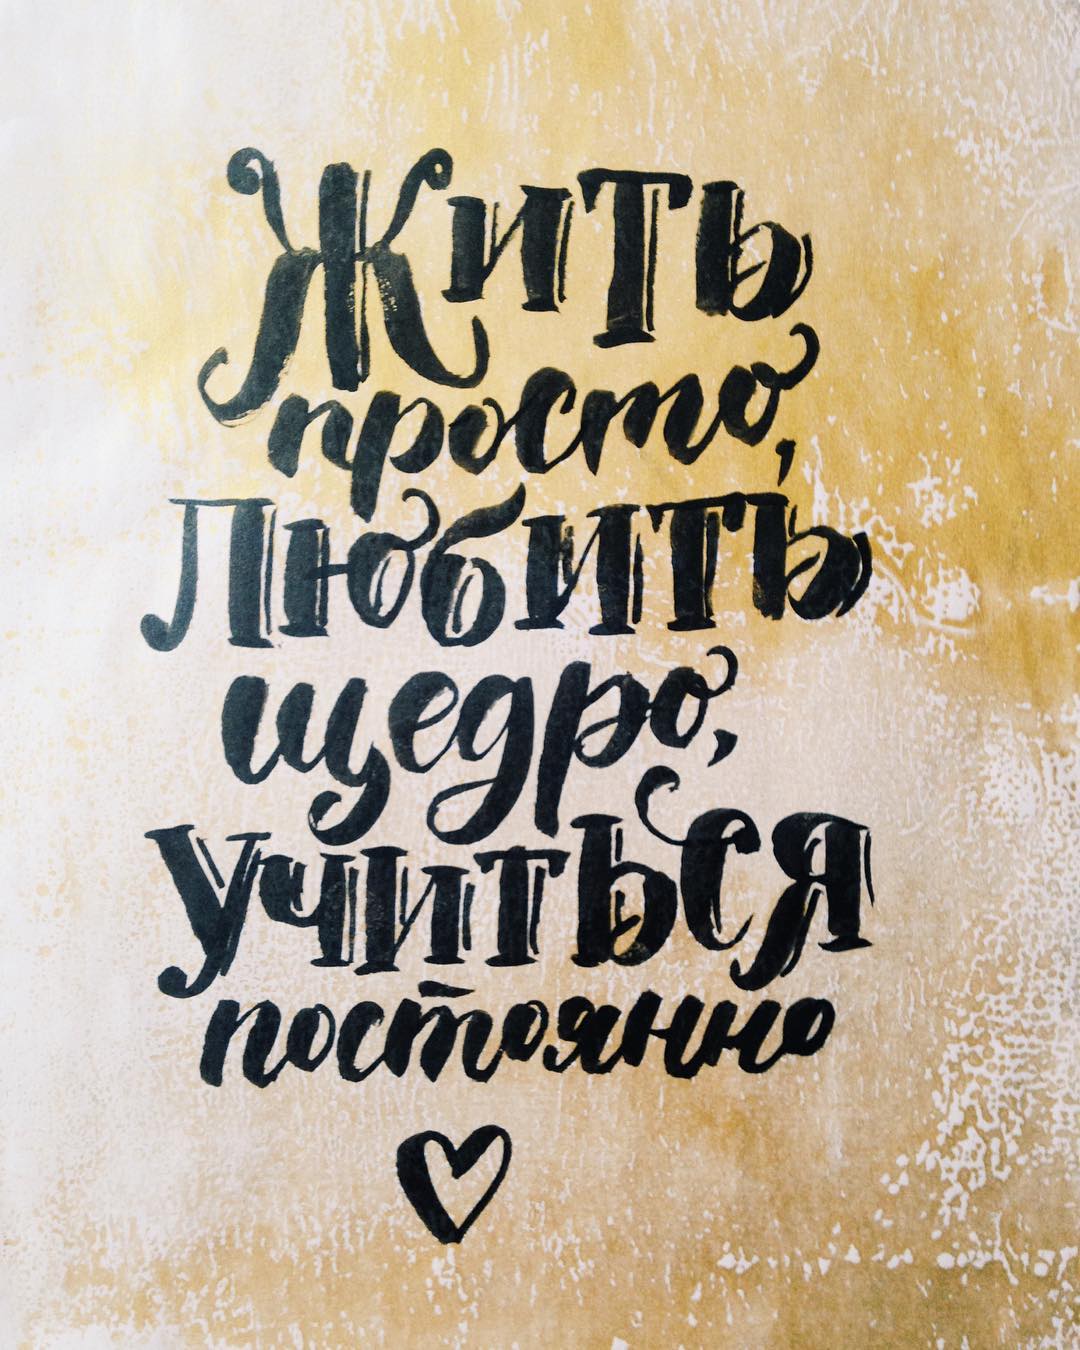 Жить
просто,
Любить
щедро,
Учиться
постоянно